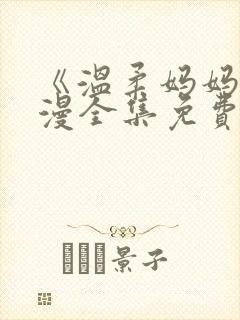 《溫柔妈妈
漫全集免費
景子